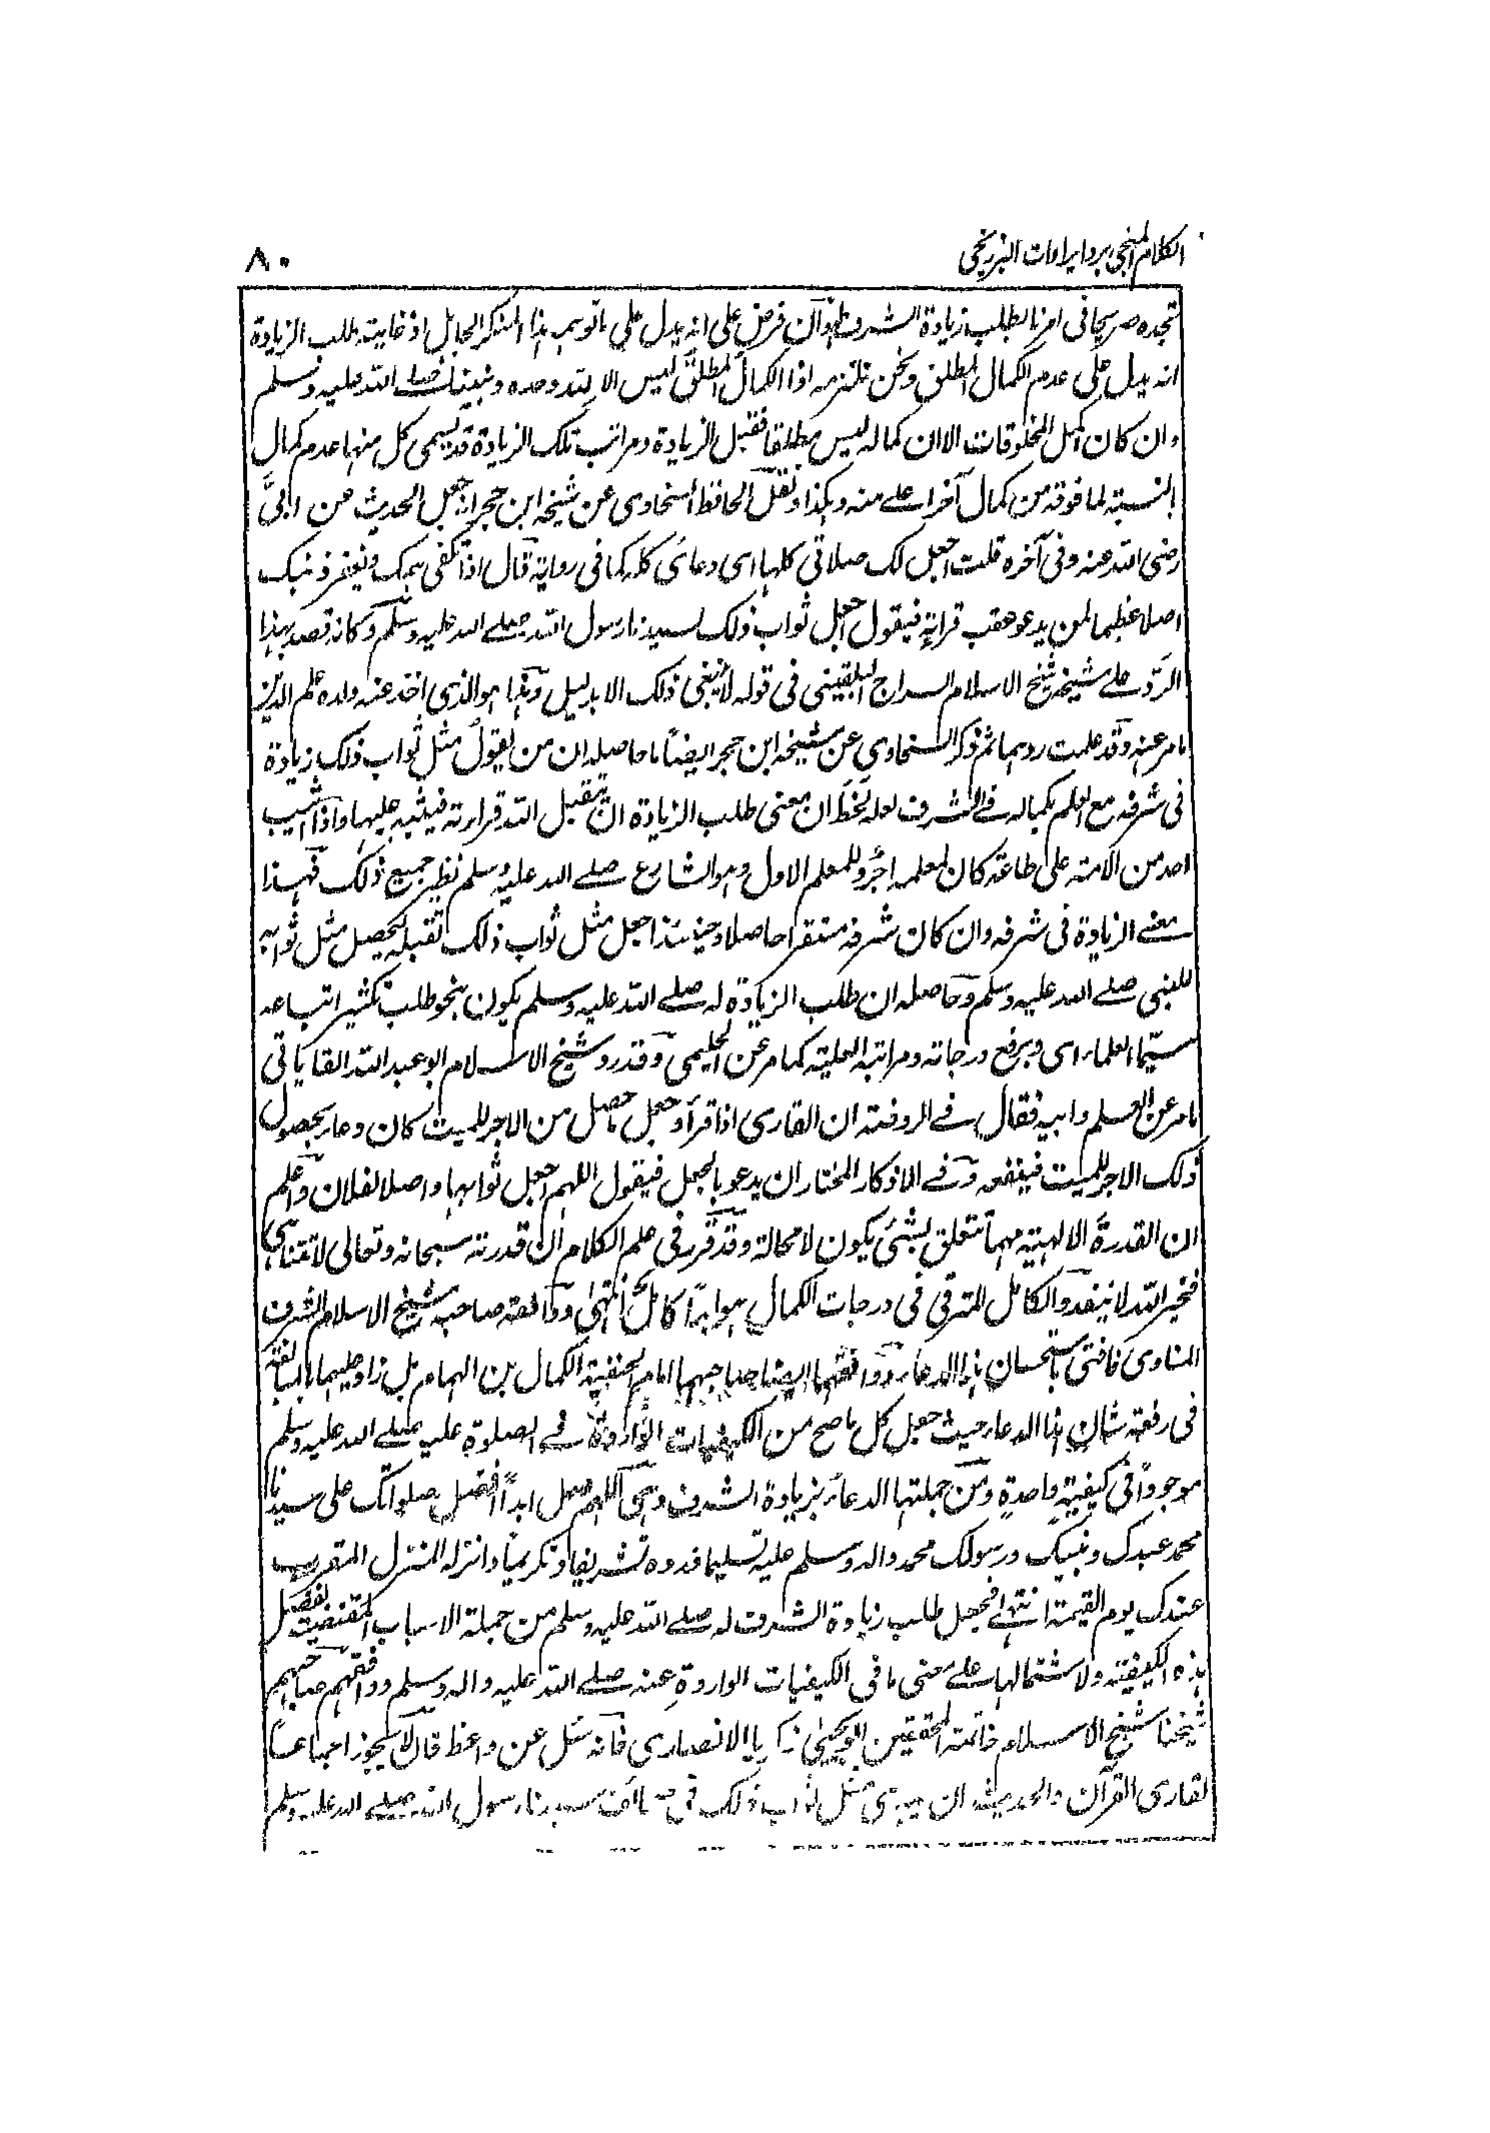 الكلام المنجى برد ايرادات البرزنجى
٨٠
تجده صريحا فى امرنا بطلب زيادة الشرف له وآن فرض على انه يدل على ما توهمه هذا المنكر الجاهل اذ غايته طلب الزيادة
انه يدل على عدم الكمال المطلق ونحن نلتزمه اذا الكمال المطلق ليس الا لله وحده ونبينا صلے الله عليه وسلم
وان كان اكمل المخلوقات الا ان كماله ليس مطلقا فقبل الزيادة ومراتب تلك الزيادة قد يسمى كل منها عدم كمال
بالنسبة لما فوقه من كمال آخر اعلے منه وهكذا ونقل الحافظ السخاوى عن شيخه ابن حجر انه جعل الحديث عن ابىّ
رضى الله عنه وفى آخره قلت اجعل لك صلاتى كلها اى دعائى كله كما فى رواية قال اذا تكفى همك ويغفر ذنبك
اصلا عظيما لمن يدعو عقب قراءته فيقول اجعل ثواب ذلك لسيدنا رسول الله صلے الله عليه وسلم وكانه قصد بهذا
الردّ علے شيخه شيخ الاسلام السراج البلقينى فى قوله لا ينبغى ذلك الا بدليل وهذا هو الذى اخذ عنه ولده علم الدين
مامر عنه وقد علمت ردهما ثم ذكر السخاوى عن شيخه ابن حجر ايضا ما حاصله ان من يقول مثل ثواب ذلك زيادة
فى شرفه مع العلم بكماله فے الشرف لعله لحظ ان معنى طلب الزيادة ان يتقبل الله قراءته فيثيبه عليها واذا اثيب
احد من الامة على طاعة كان لمعلمه اجر وللمعلم الاول وهو الشارع صلے الله عليه وسلم نظير جميع ذلك فهذا
معنے الزيادة فى شرفه وان كان شرفه مستقرا حاصلا وحينئذ اجعل مثل ثواب ذلك تقبله ليحصل مثل ثوابه
للنبى صلے الله عليه وسلم وحاصله ان طلب الزيادة له صلے الله عليه وسلم يكون بنحو طلب تكثير اتباعه
سيما العلماء اى وبرفع درجاته ومراتبه العلية كما مر عن الحليمى وقد رد شيخ الاسلام ابو عبد الله القاياتى
مامر عن العلم وابيه فقال فے الروضة ان القارى اذا قرأ وجعل ما حصل من الاجر للميت كان دعاء بحصول
ذلك الاجر للميت فينفعه وفے الاذكار المختار ان يدعو بالجعل فيقول اللهم اجعل ثوابها واصلا لفلان واعلم
ان القدرة الالهية مهما تتعلق بشئ يكون لا محالة وقد قرر فى علم الكلام ان قدرته سبحانه وتعالى لا تتناهى
فخير الله لا ينفد والكامل المترقى فى درجات الكمال هو ابدا كامل انتهى ووافقه صاحبه شيخ الاسلام الشرف
المناوى فافتى باستحسان هذا الدعاء ووافقهما ايضا صاحبهما امام الحنفية الكمال بن الهمام بل زاد عليهما بالمبالغة
فى رفعة شان هذا الدعاء حيث جعل كل ما صح من الكيفيات الواردة فے الصلوة عليه صلے الله عليه وسلم
موجودا فى كيفيةٍ واحدةٍ ومن جملتها الدعاء بزيادة الشرف وهى اللهم صل ابداً افضل صلواتك على سيدنا
محمد عبدك ونبيك ورسولك محمد واله وسلم عليه تسليما وزده تشريفا وتكريما وانزله المنزل المقرب
عندك يوم القيمة انتهے فجعل طلب زيادة الشرف له صلے الله عليه وسلم من جملة الاسباب المقتضية لفضل
هذه الكيفية ولاشتمالها علے معنى ما فى الكيفيات الواردة عنه صلے الله عليه واله وسلم ووافقهم صاحبهم
شيخنا شيخ الاسلام خاتمة المحققين ابو يحيىٰ زكريا الانصارى فانه سئل عن واعظ قال لا يجوز اجماعا
لقارى القرآن والحديث ان يهدى مثل ثواب ذلك فى صحائف سيدنا رسول الله صلے الله عليه وسلم